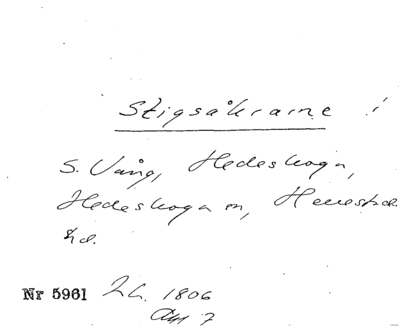 Stigsåkrarne
S. Vång, Hedeskoga,
Hedeskoga sn, Herrestads
hd.
Nr 5961 Lh. 1806
Akt 7